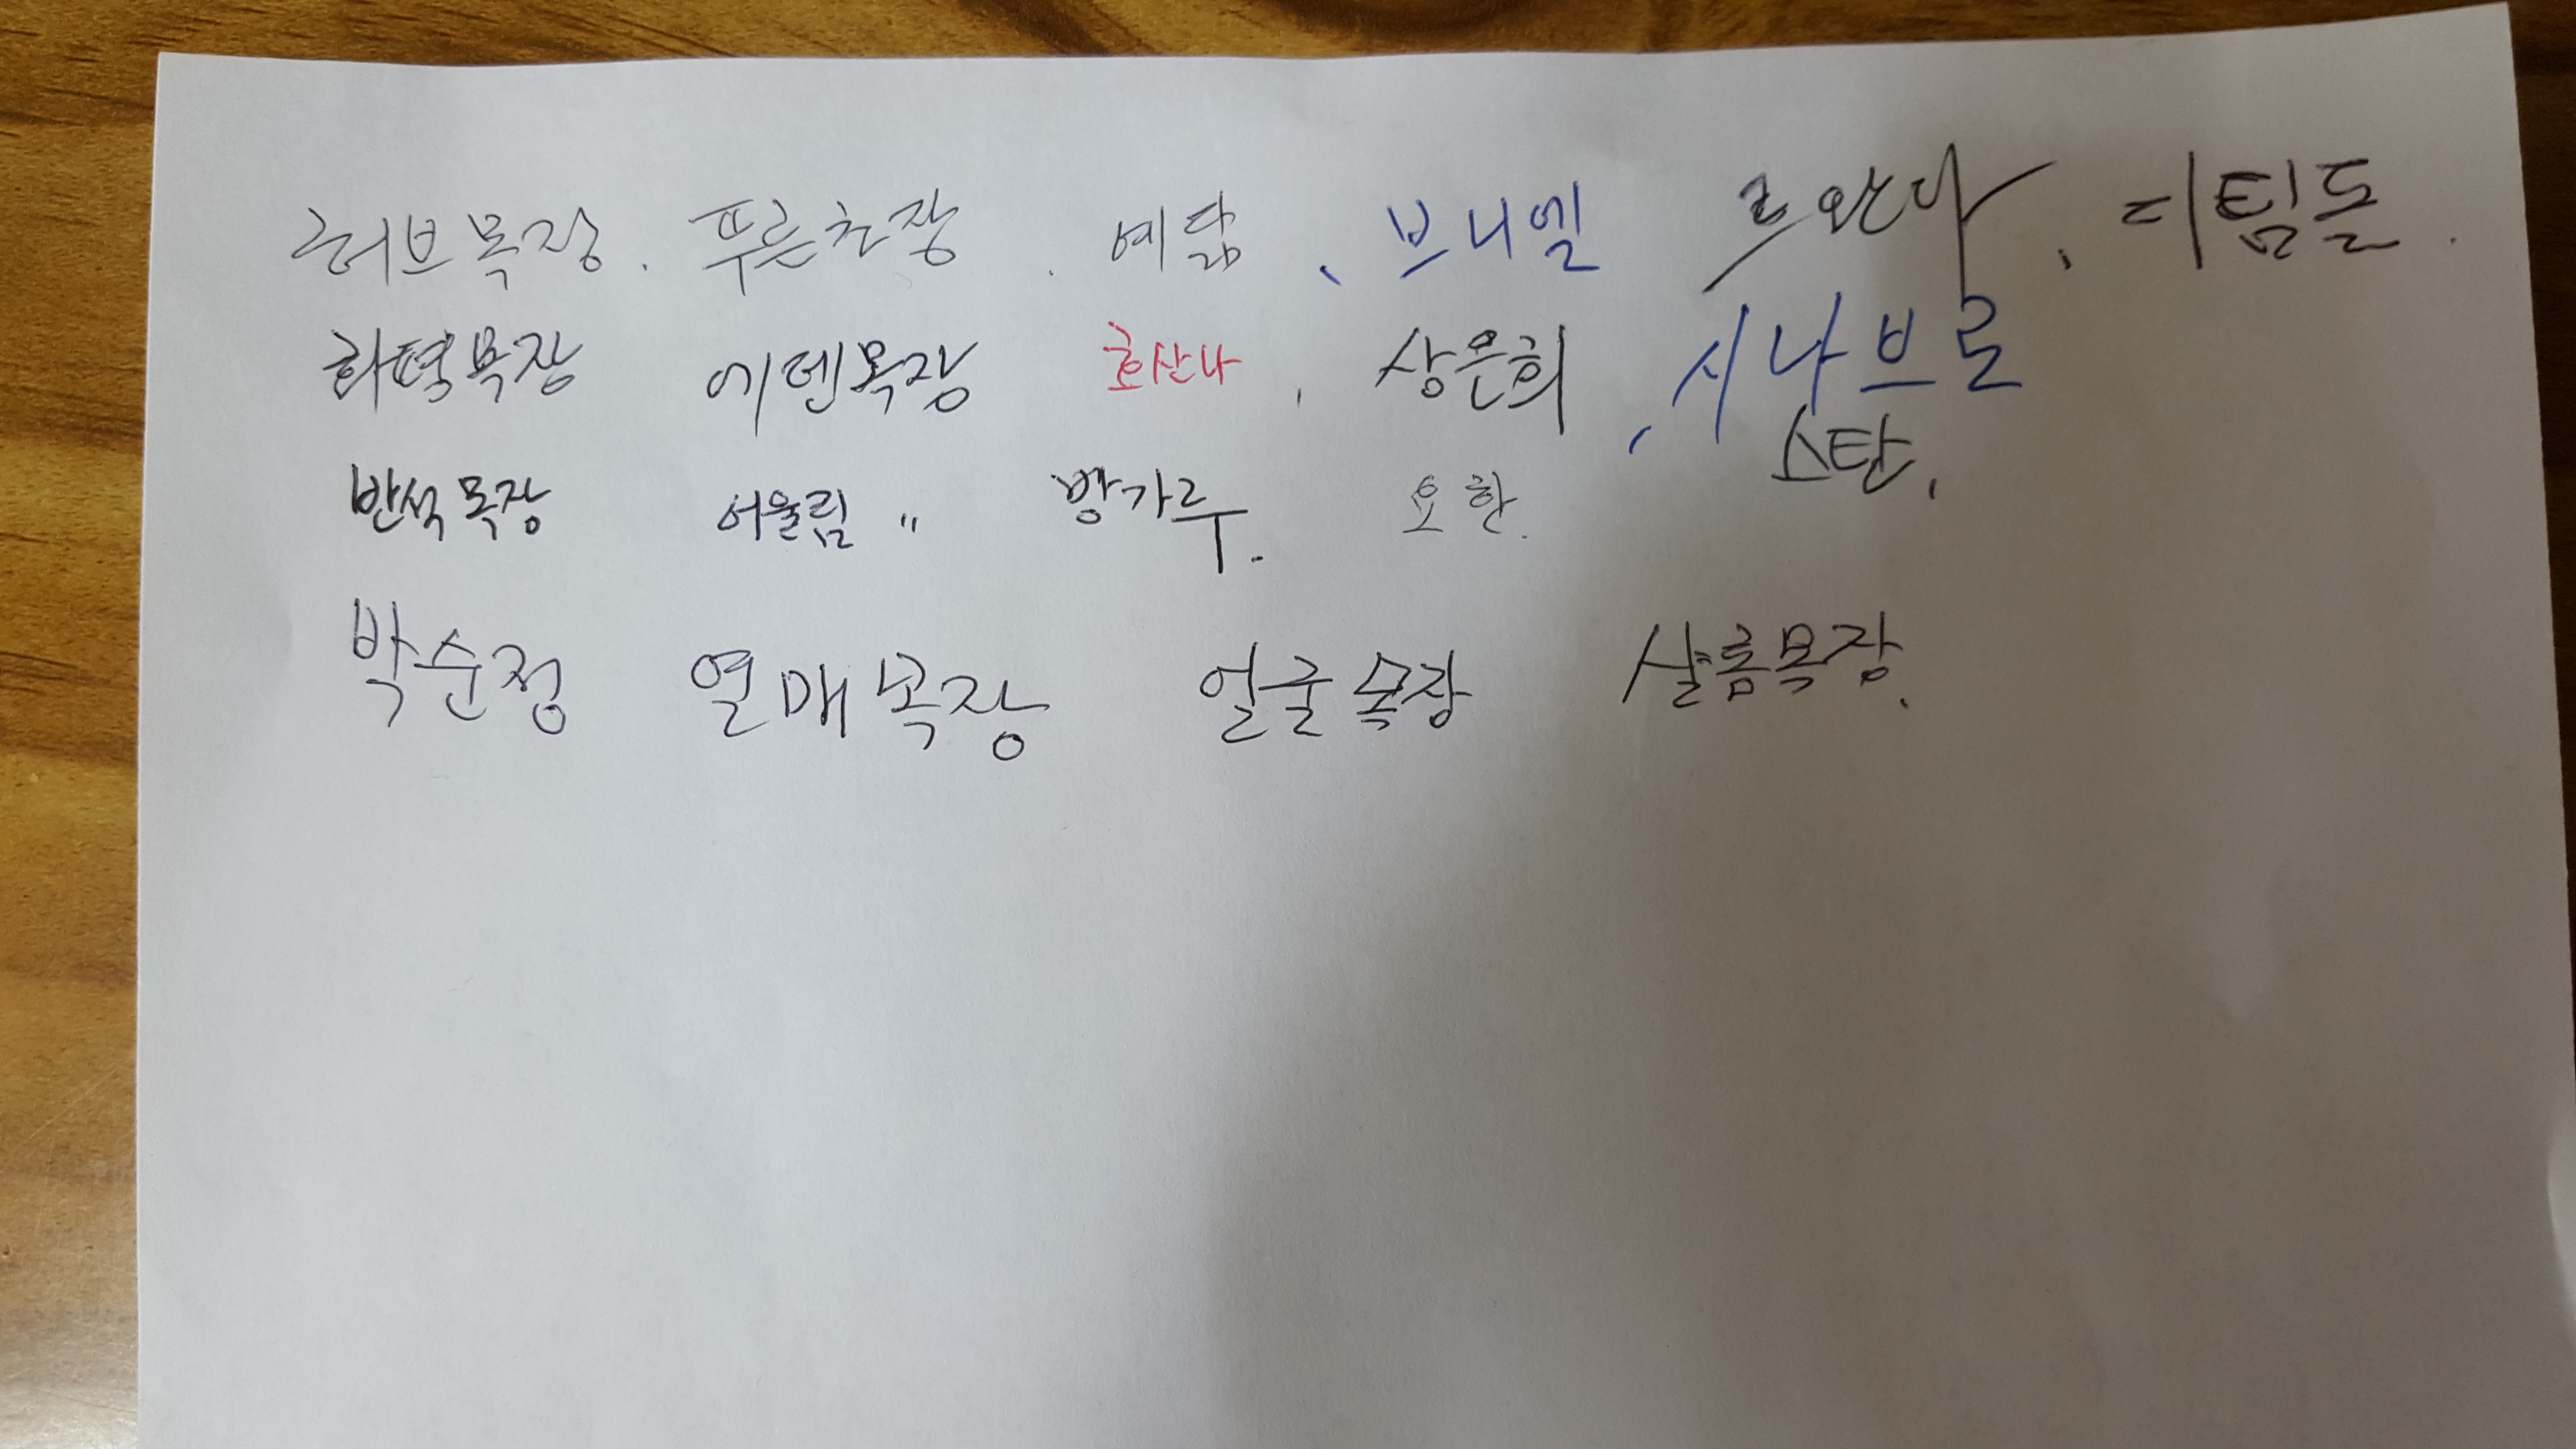 허브목장. 푸른초장. 예닮, 브니엘 르완다, 디딤돌.
화평목장 에덴목장 호산나, 상은희, 시나브로
스탄,
반석목장 어울림 " 방가루. 요한.
박순정 열매목장 얼굴목장 샬롬목장.